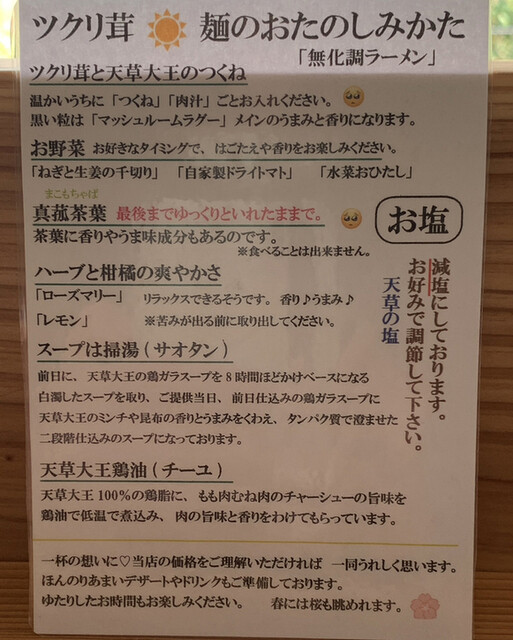 ツクリ茸 麺のおたのしみかた
「無化調ラーメン」
ツクリ茸と天草大王のつくね
温かいうちに「つくね」「肉汁」ごとお入れください。
黒い粒は「マッシュルームラグー」メインのうまみと香りになります。
お野菜 お好きなタイミングで、はごたえや香りをお楽しみください。
「ねぎと生姜の千切り」 「自家製ドライトマト」 「水菜おひたし」
まこもちゃば
真菰茶葉 最後までゆっくりといれたままで。
茶葉に香りやうま味成分もあるのです。
※食べることは出来ません。
お塩
減塩にしております。
お好みで調節して下さい。
天草の塩
ハーブと柑橘の爽やかさ
「ローズマリー」 リラックスできるそうです。 香り♪うまみ♪
「レモン」 ※苦みが出る前に取り出してください。
スープは掃湯(サオタン)
前日に、天草大王の鶏ガラスープを8時間ほどかけベースになる
白濁したスープを取り、ご提供当日、前日仕込みの鶏ガラスープに
天草大王のミンチや昆布の香りとうまみをくわえ、タンパク質で澄ませた
二段階仕込みのスープになっております。
天草大王鶏油(チーユ)
天草大王100%の鶏脂に、もも肉むね肉のチャーシューの旨味を
鶏油で低温で煮込み、肉の旨味と香りをわけてもらっています。
一杯の想いに♡当店の価格をご理解いただければ 一同うれしく思います。
ほんのりあまいデザートやドリンクもご準備しております。
ゆたりしたお時間もお楽しみください。 春には桜も眺めれます。